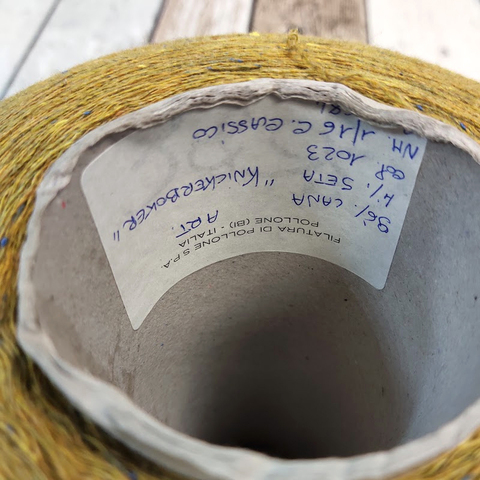 FILATURA DI POLLONE S.P.A.
POLLONE (BI) - ITALIA
ART.
"KNICKERBOKER"
96% LANA
4% SETA
COL. 1023
NM. 1/16 C. CLASSICO